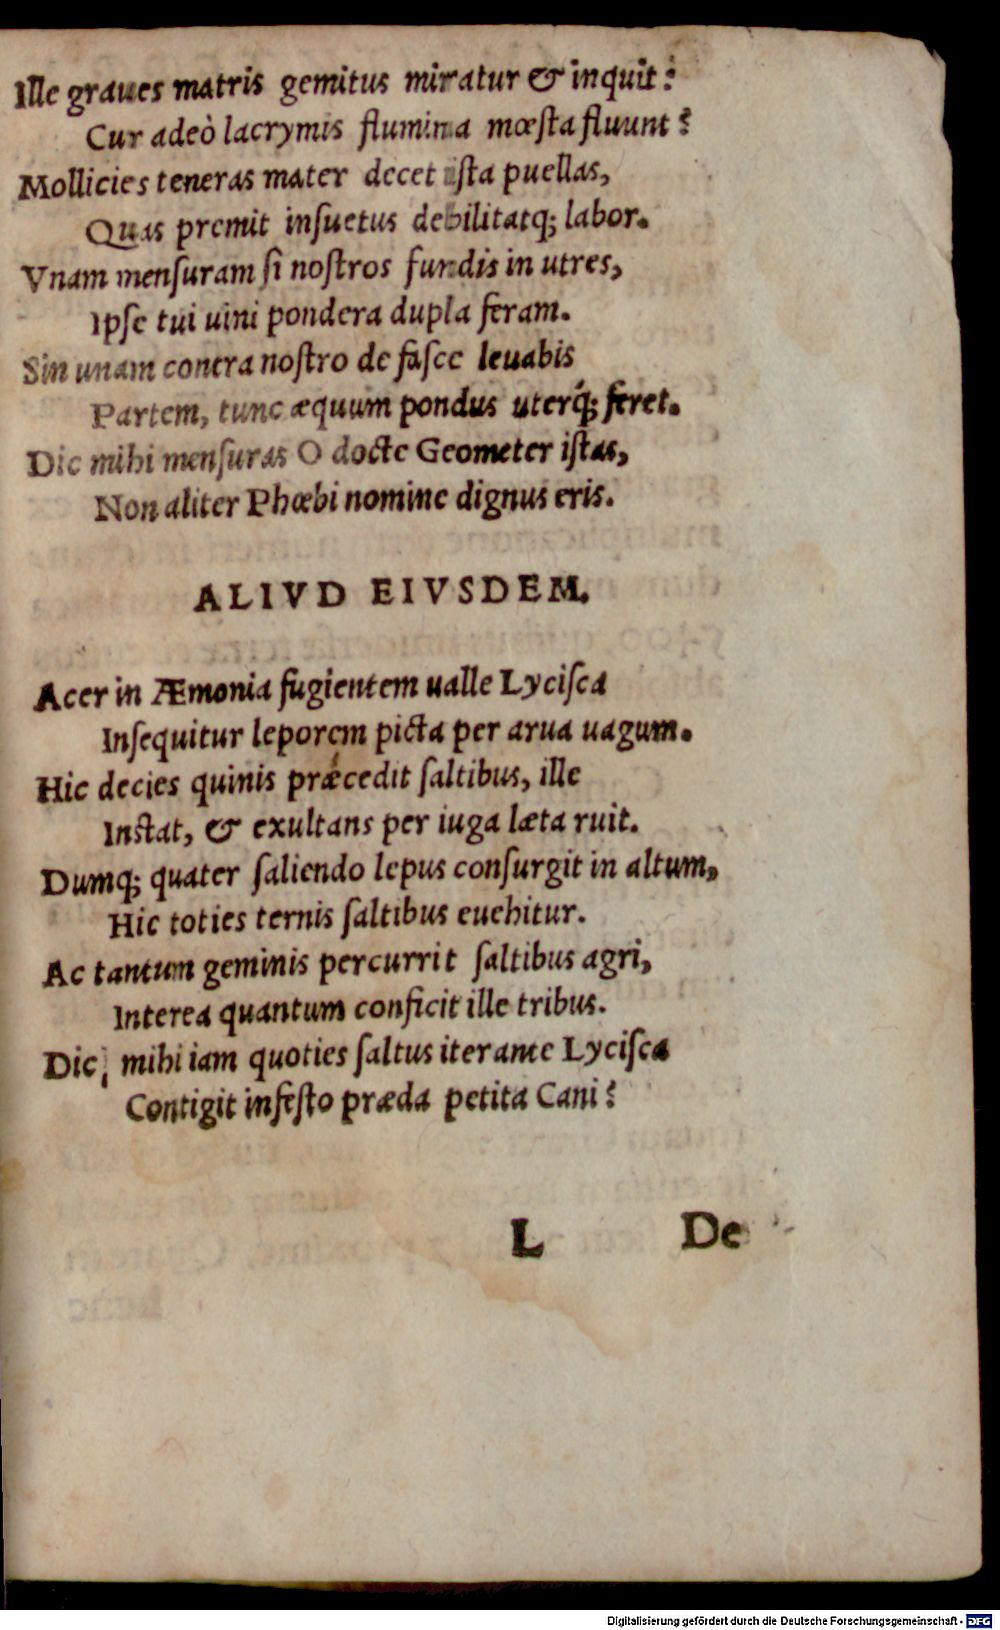 Ille graues matris gemitus miratur & inquit:
Cur adeò lacrymis flumina mœſta fluunt?
Mollicies teneras mater decet iſta puellas,
Quas premit inſuetus debilitatq; labor.
Vnam menſuram ſi noſtros fundis in utres,
Ipſe tui uini pondera dupla feram.
Sin unam contra noſtro de faſce leuabis
Partem, tunc æquum pondus uterq́; feret.
Dic mihi menſuras O docte Geometer iſtas,
Non aliter Phœbi nomine dignus eris.
ALIVD EIVSDEM.
Acer in Æmonia fugientem ualle Lyciſca
Inſequitur leporem picta per arua uagum.
Hic decies quinis præcedit ſaltibus, ille
Inſtat, & exultans per iuga læta ruit.
Dumq; quater ſaliendo lepus conſurgit in altum,
Hic toties ternis ſaltibus euehitur.
Ac tantum geminis percurrit ſaltibus agri,
Interea quantum conficit ille tribus.
Dic, mihi iam quoties ſaltus iterante Lyciſca
Contigit infeſto præda petita Cani?
L De
Digitalisierung gefördert durch die Deutsche Forschungsgemeinschaft - DFG